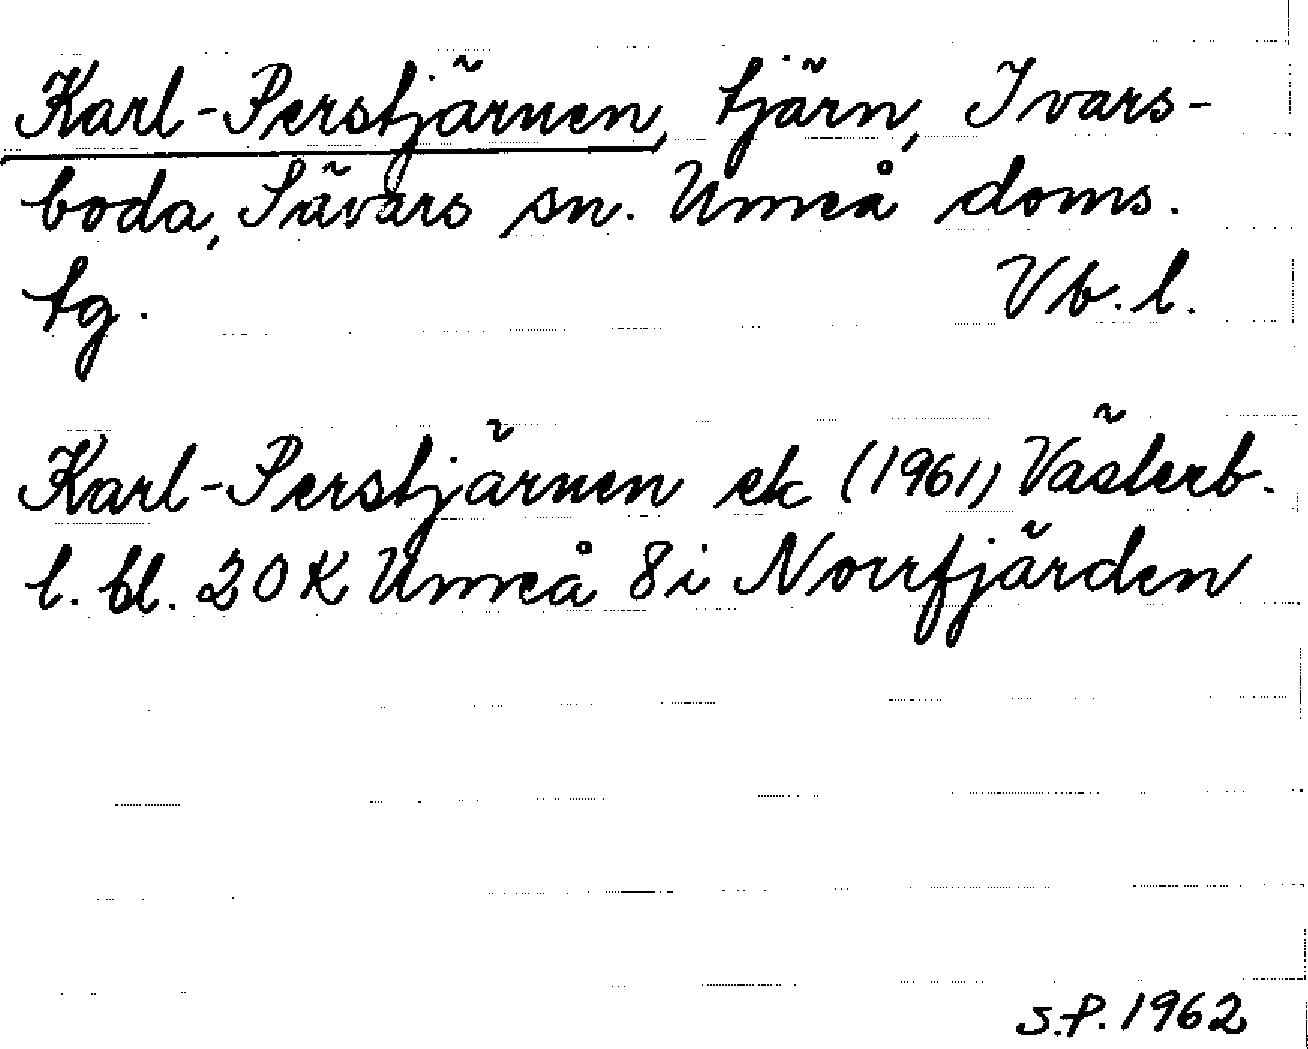 Karl-Perstjärnen, tjärn, Ivars-
boda, Sävars sn. Umeå doms.
tg. Vb. l.
Karl-Perstjärnen ek (1961) Västerb.
l. bl. 20 K Umeå 8 i Norrfjärden
S.P. 1962